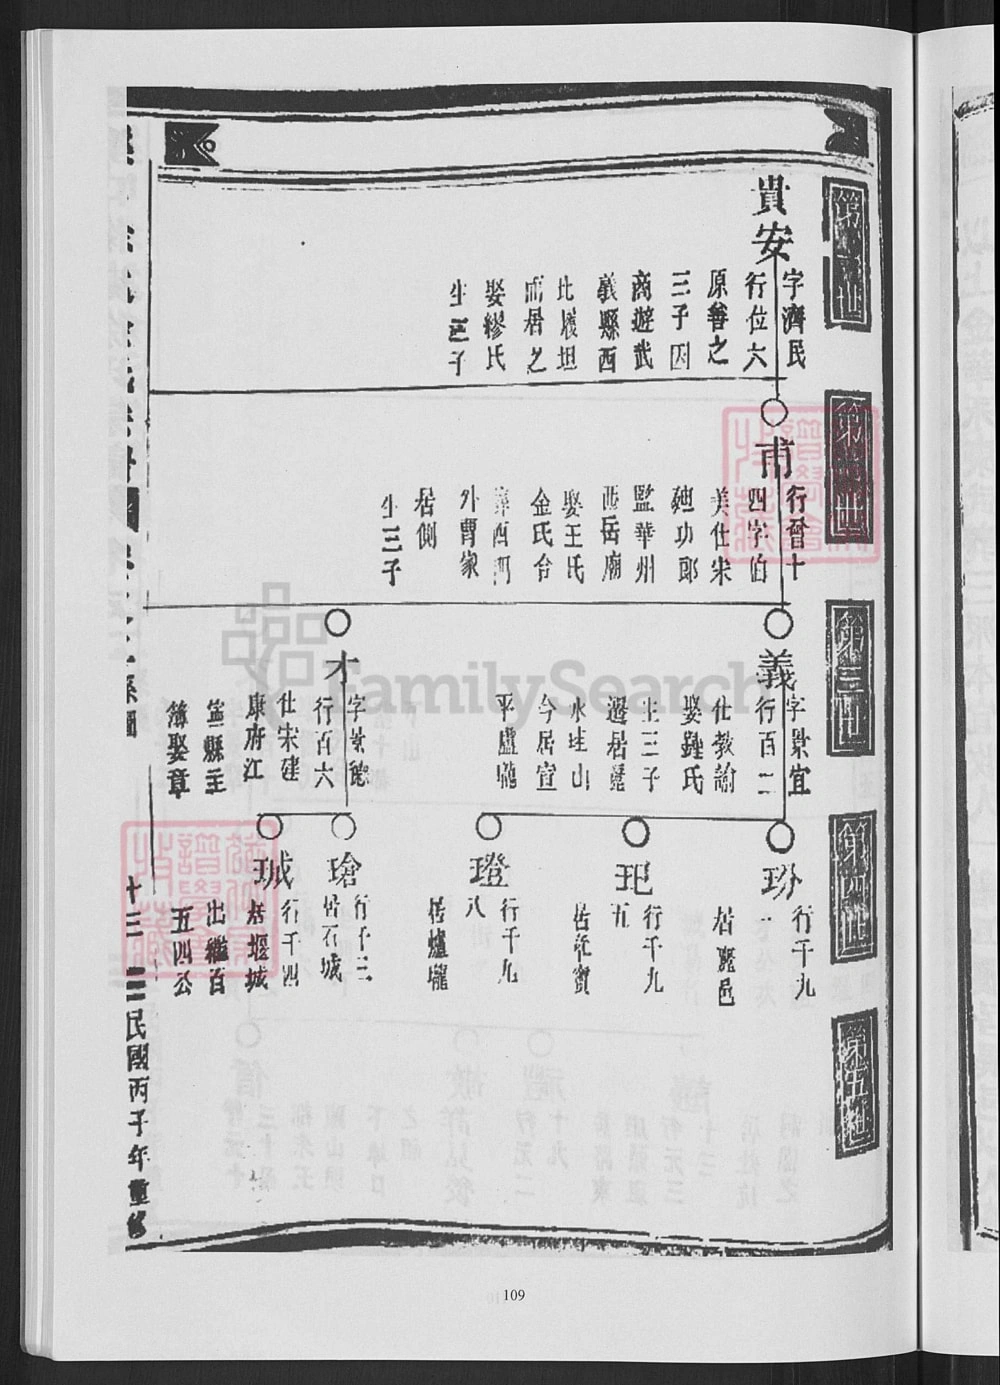 第一世
貴安
字濟民
行位六
原善之
三子因
商遊武
義縣西
比履坦
而居之
娶繆氏
生三子
第二世
甫
行晉十
四字伯
美仕宋
廸功郎
監華州
西岳廟
娶王氏
金氏合
葬西河
外曹家
居側
生三子
第三世
義
字景宜
行百二
仕教諭
娶鍾氏
生三子
遷居
水 山
今居宣
平盧
才
字景
行百六
仕宋建
康府江
寧縣主
簿娶章
第四世
玢
行千九
一
居
玘
行千九
五
居
璒
行千九
八
居爐壠
瑲
行千三
居石城
珹
行千四
居堰城
出繼百
五四公
第五世
系圖
十三
民國丙子年重修
FamilySearch
109